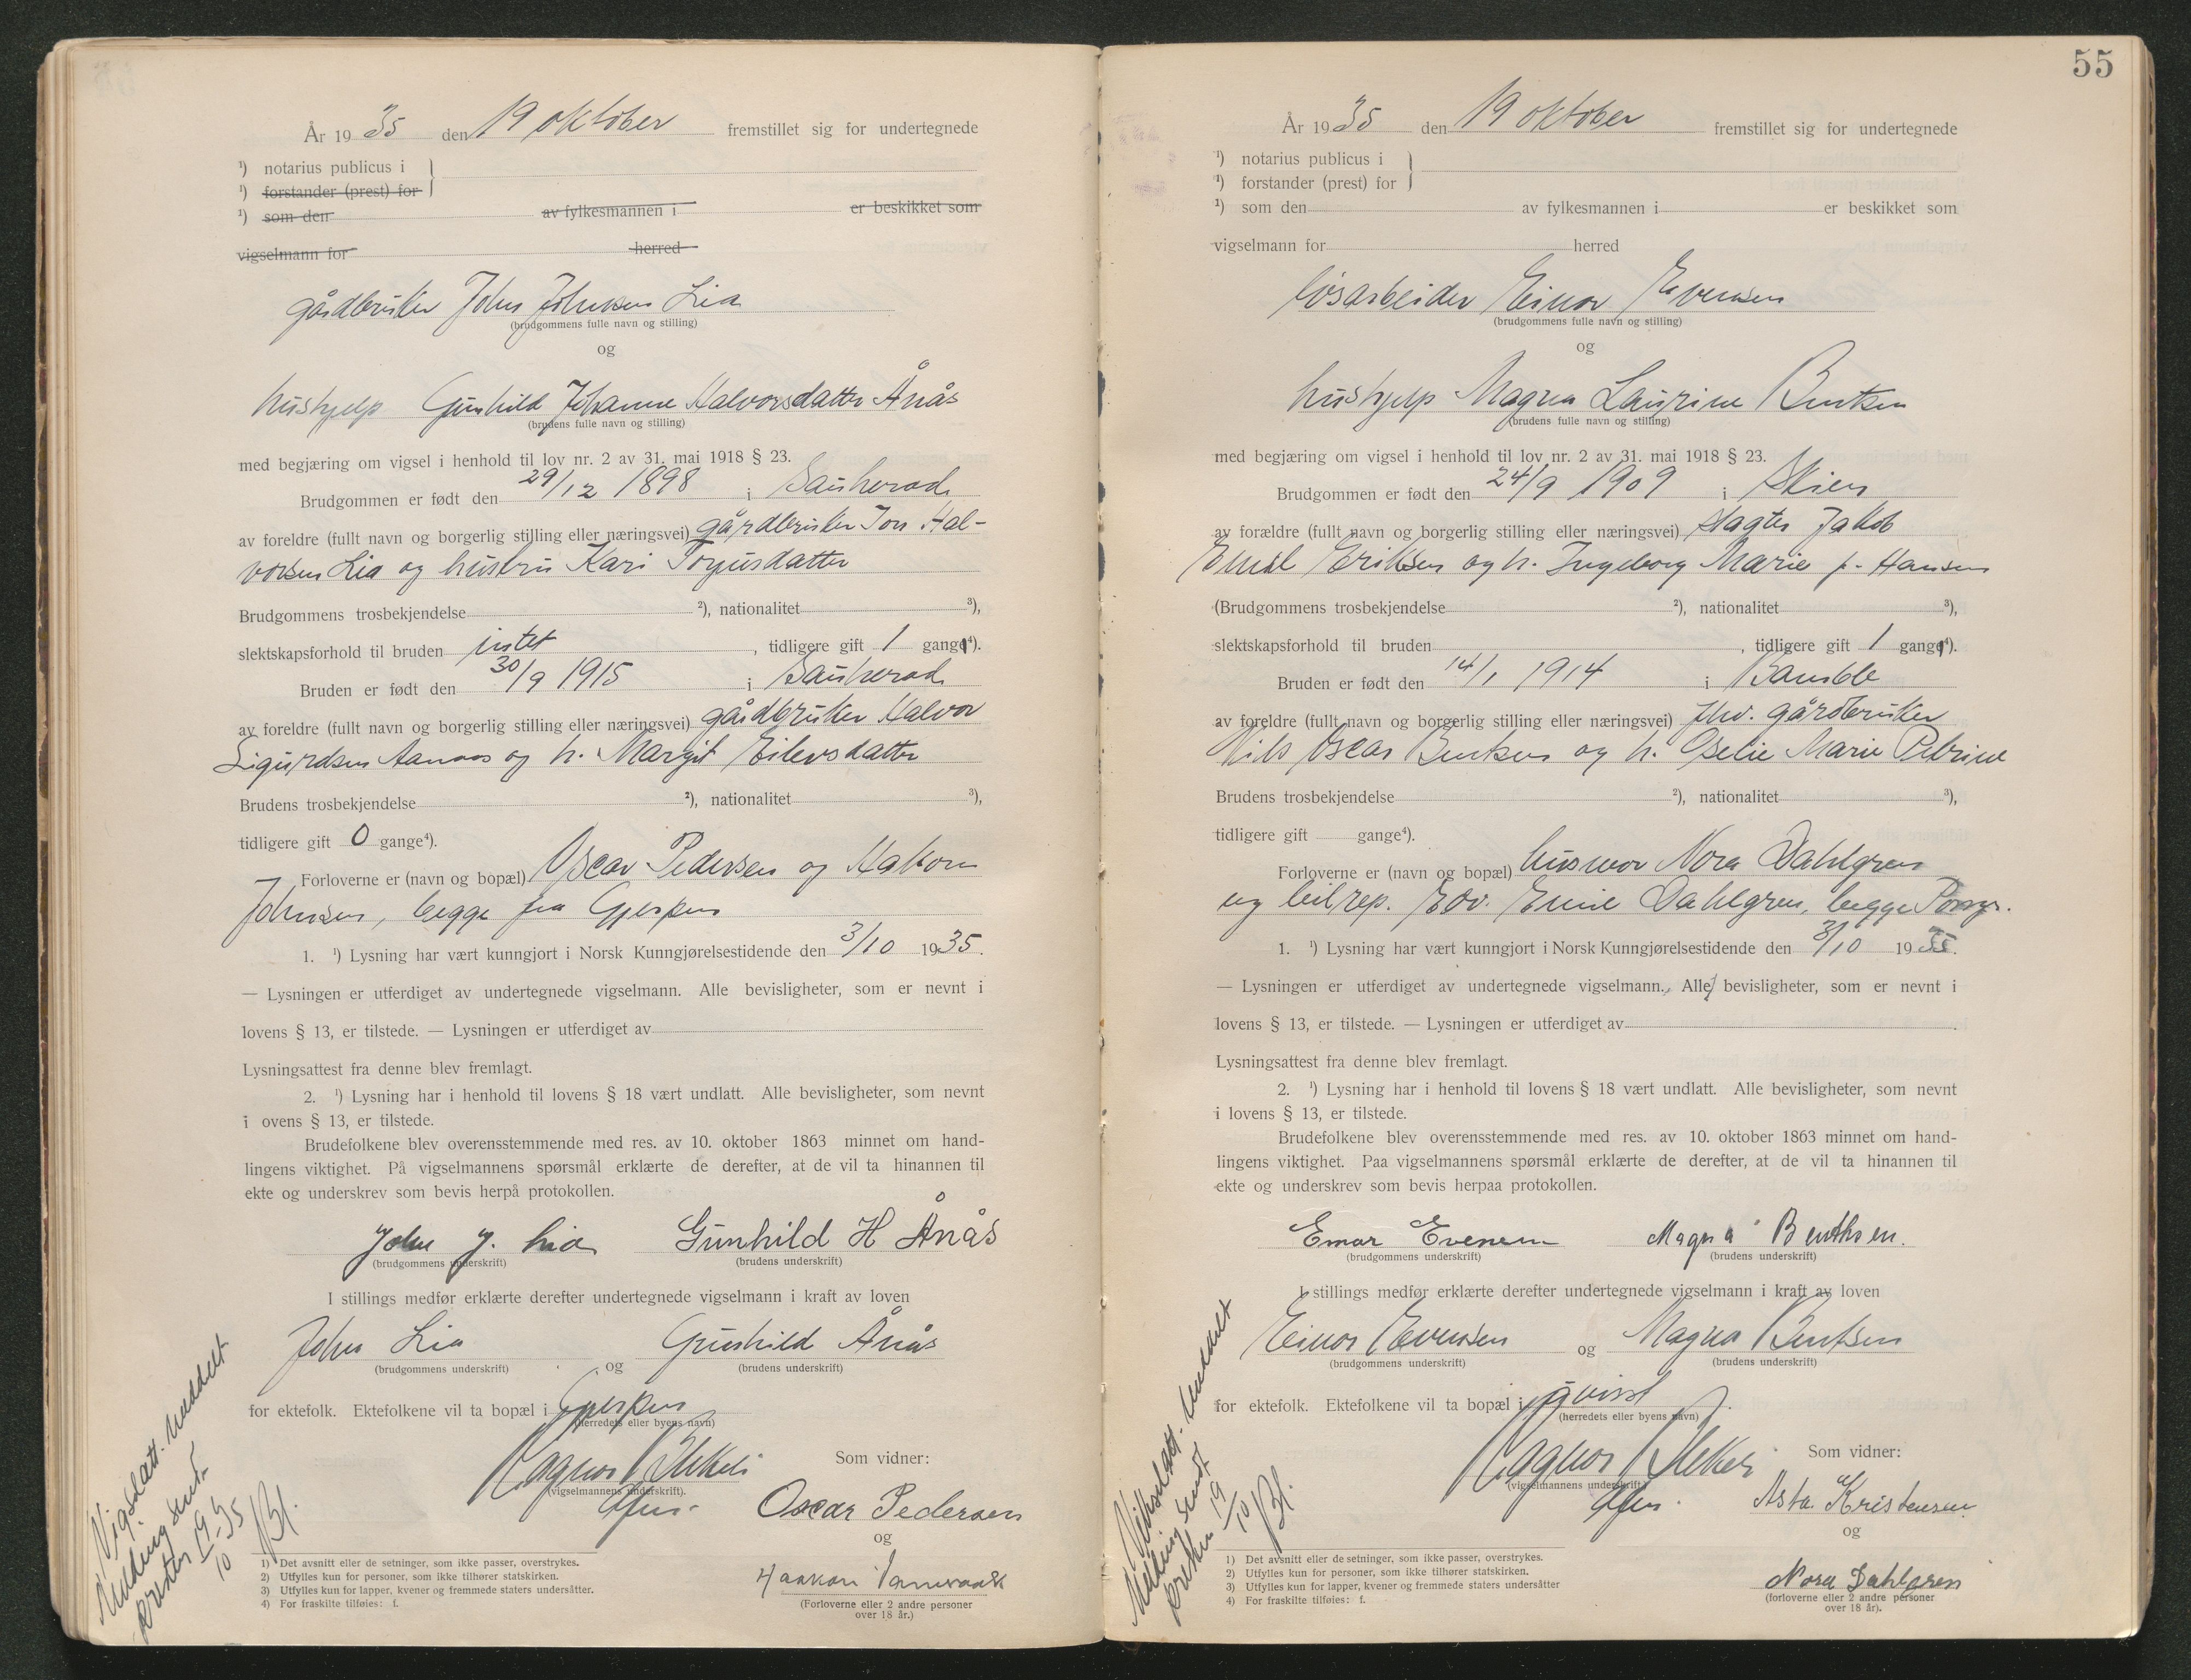 År 19 35 den 19 oktober fremstillet sig for undertegnede
¹) notarius publicus i
¹) forstander (prest) for
¹) som den av fylkesmannen i er beskikket som
vigselmann for herred
gårdbruker John Johnsen Lia
(brudgommens fulle navn og stilling)
og
hushjelp Gunhild Johanne Halvorsdatter Ånås
(brudens fulle navn og stilling)
med begjæring om vigsel i henhold til lov nr. 2 av 31. mai 1918 § 23.
Brudgommen er født den 29/12 1898 i Sauherad
av foreldre (fullt navn og borgerlig stilling eller næringsvei) gårdbruker Jon Hal-
vorsen Lia og hustru Kari Torjusdatter
Brudgommens trosbekjendelse ²), nationalitet ³),
slektskapsforhold til bruden intet, tidligere gift 1 gang⁴).
Bruden er født den 30/9 1915 i Sauherad
av foreldre (fullt navn og borgerlig stilling eller næringsvei) gårdbruker Halvor
Sigurdsen Aanaas og h. Margit Eilevsdatter
Brudens trosbekjendelse ²), nationalitet ³),
tidligere gift 0 gange⁴).
Forloverne er (navn og bopæl) Oscar Pedersen og Hakon
Johnsen, begge fra Gjerpen
1. ¹) Lysning har vært kunngjort i Norsk Kunngjørelsestidende den 3/10 1935.
— Lysningen er utferdiget av undertegnede vigselmann. Alle bevisligheter, som er nevnt i
lovens § 13, er tilstede. — Lysningen er utferdiget av
Lysningsattest fra denne blev fremlagt.
2. ¹) Lysning har i henhold til lovens § 18 vært undlatt. Alle bevisligheter, som nevnt
i ovens § 13, er tilstede.
Brudefolkene blev overensstemmende med res. av 10. oktober 1863 minnet om hand-
lingens viktighet. På vigselmannens spørsmål erklærte de derefter, at de vil ta hinannen til
ekte og underskrev som bevis herpå protokollen.
John J. Lia Gunhild H Ånås
(brudgommens underskrift) (brudens underskrift)
I stillings medfør erklærte derefter undertegnede vigselmann i kraft av loven
John Lia og Gunhild Ånås
(brudgommens underskrift) (brudens underskrift)
for ektefolk. Ektefolkene vil ta bopæl i Gjerpen
(herredets eller byens navn)
Ragnar
(vigselmannens underskrift).
Som vidner:
Oscar Pedersen
og
Haakon
(Forloverne eller 2 andre personer
over 18 år.)
Vigselatt. meddelt
Melding sendt
presten 19/10-35
1) Det avsnitt eller de setninger, som ikke passer, overstrykes.
2) Utfylles kun for personer, som ikke tilhører statskirken.
3) Utfylles kun for lapper, kvener og fremmede staters undersåtter.
4) For fraskilte tilføies: f.
55
År 19 35 den 19 oktober fremstillet sig for undertegnede
¹) notarius publicus i
¹) forstander (prest) for
¹) som den av fylkesmannen i er beskikket som
vigselmann for herred
løsarbeider Einar Evensen
(brudgommens fulle navn og stilling)
og
hushjelp Magna Laurine Bentsen
(brudens fulle navn og stilling)
med begjæring om vigsel i henhold til lov nr. 2 av 31. mai 1918 § 23.
Brudgommen er født den 24/9 1909 i Skien
av forældre (fullt navn og borgerlig stilling eller næringsvei) slagter Jakob
Emil Eriksen og h. Ingeborg Marie f. Hansen
(Brudgommens trosbekjendelse ²), nationalitet ³),
slektskapsforhold til bruden, tidligere gift 1 gang⁴).
Bruden er født den 14/1 1914 i Bamble
av foreldre (fullt navn og borgerlig stilling eller næringsvei) fhv. gårdbruker
Nils Oscar Bentsen og h. Oselie Marie Petrine
Brudens trosbekjendelse ²), nationalitet ³),
tidligere gift gange⁴).
Forloverne er (navn og bopæl) husmor Nora Dahlgren
og bilrep. Edv. Emil Dahlgren, begge Porsgr.
1. ¹) Lysning har vært kunngjort i Norsk Kunngjørelsestidende den 3/10 1935.
— Lysningen er utferdiget av undertegnede vigselmann. Alle bevisligheter, som er nevnt i
lovens § 13, er tilstede. — Lysningen er utferdiget av
Lysningsattest fra denne blev fremlagt.
2. ¹) Lysning har i henhold til lovens § 18 vært undlatt. Alle bevisligheter, som nevnt
i lovens § 13, er tilstede.
Brudefolkene blev overensstemmende med res. av 10. oktober 1863 minnet om hand-
lingens viktighet. Paa vigselmannens spørsmål erklærte de derefter, at de vil ta hinannen til
ekte og underskrev som bevis herpaa protokollen.
Einar Evensen Magna Benthsen.
(brudgommens underskrift) (brudens underskrift)
I stillings medfør erklærte derefter undertegnede vigselmann i kraft av loven
Einar Evensen og Magna Bentsen
(brudgommens underskrift) (brudens underskrift)
for ektefolk. Ektefolkene vil ta bopæl i
(herredets eller byens navn)
Ragnar
(vigselmannens underskrift)
Som vidner:
Asta Kristensen
og
Nora Dahlgren
(forloverne eller 2 andre personer
over 18 år).
Vikselatt. meddelt
Melding sendt
presten 19/10
1) Det avsnitt eller de setninger, som ikke passer, overstrykes.
2) Utfylles kun for personer, som ikke tilhører statskirken.
3) Utfylles kun for lapper, kvener og fremmede staters undersåtter
4) For fraskilte tilføies: f.